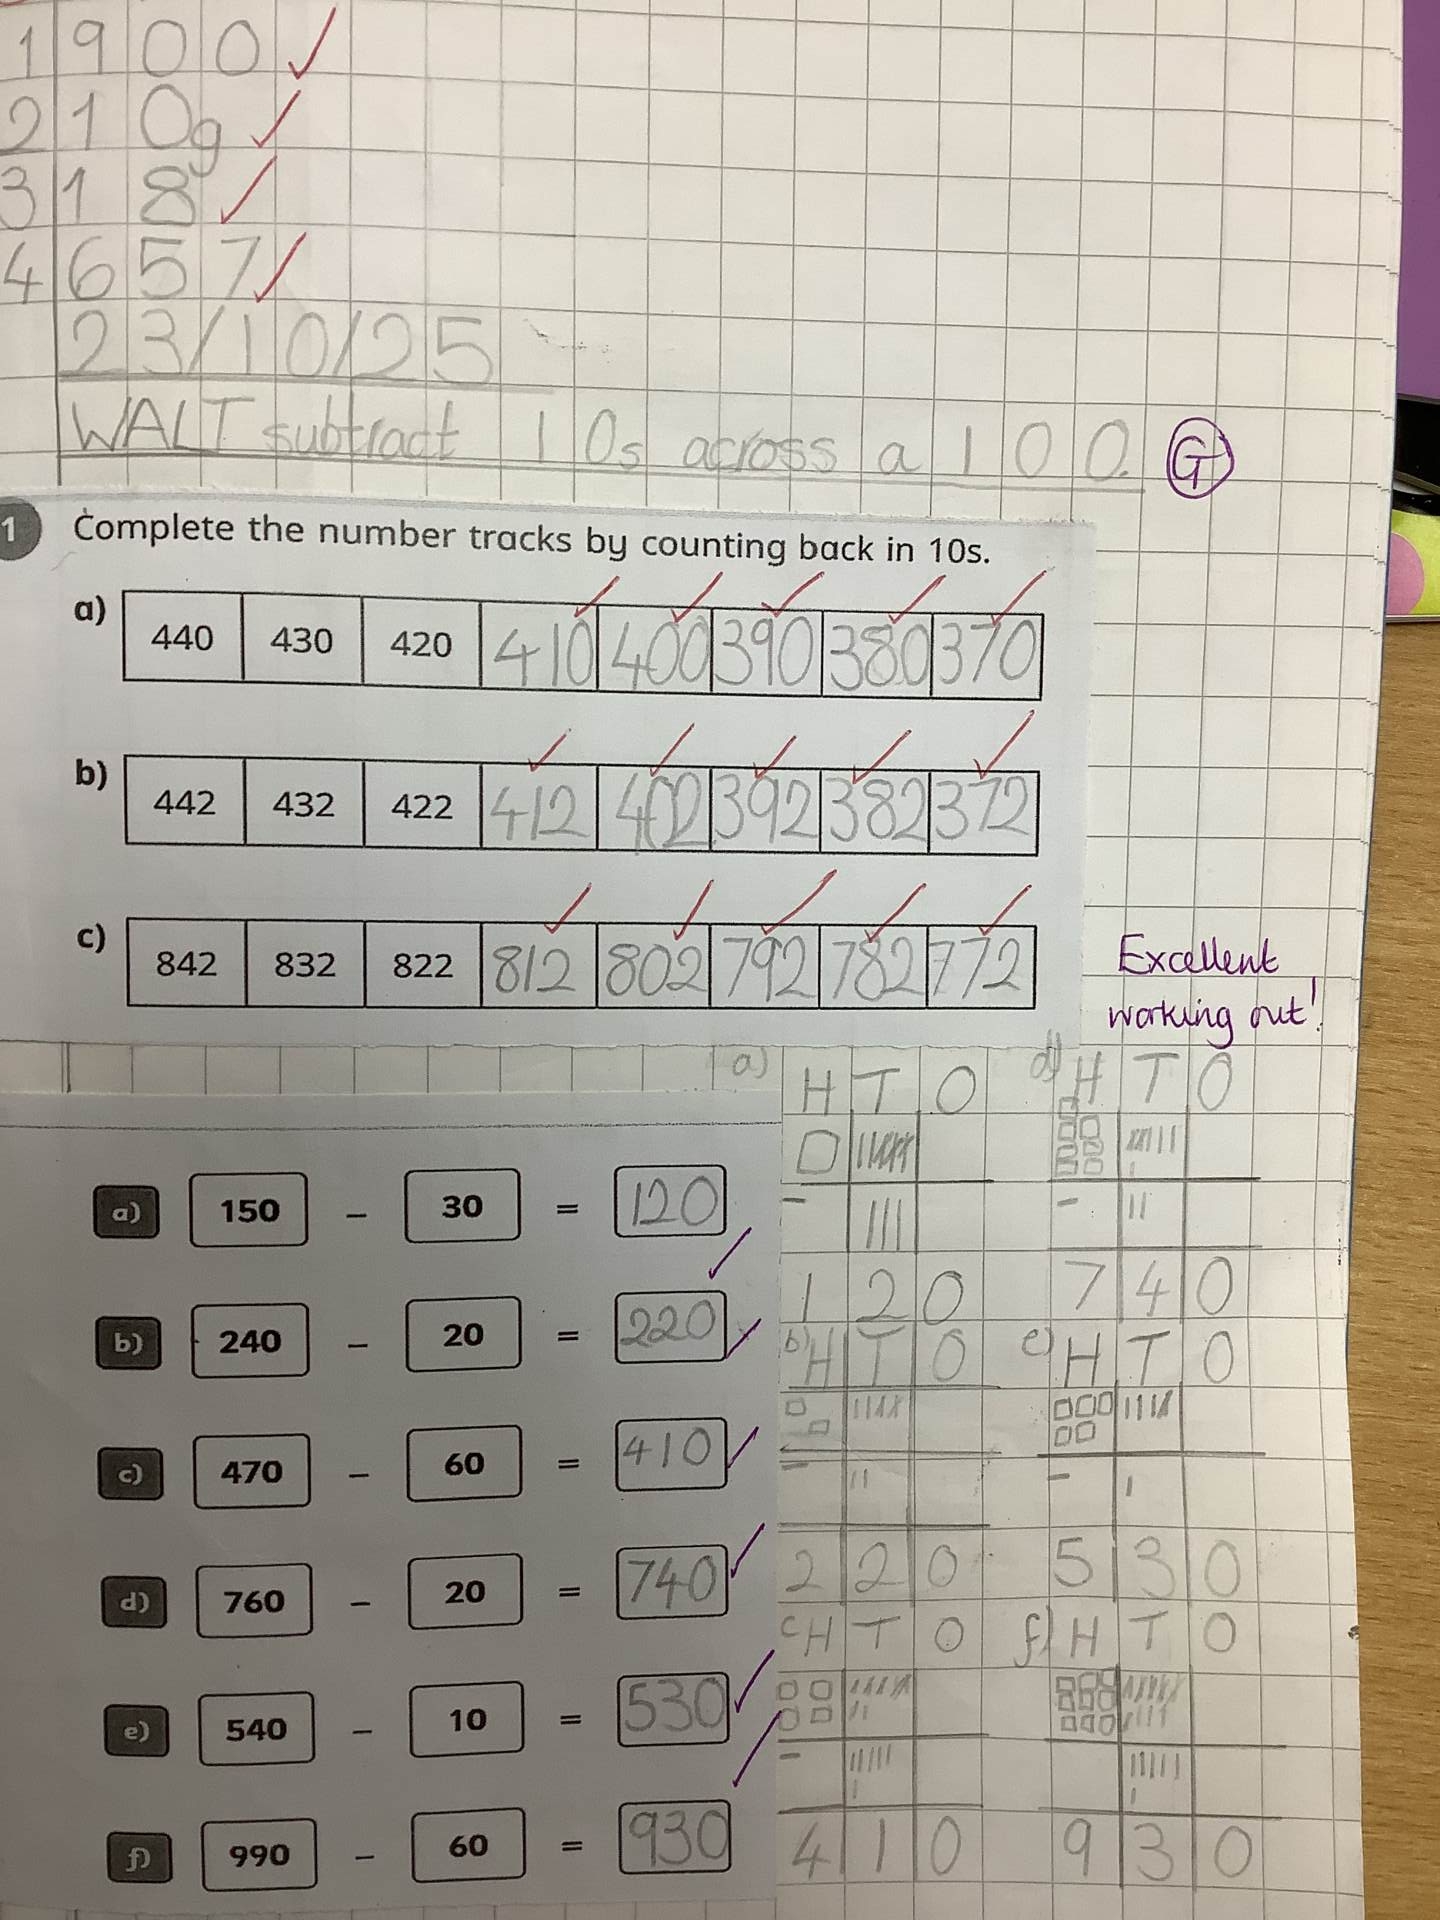 1 900 ✓
2 10g ✓
3 18 ✓
4 657 ✓
23/10/25
WALT subtract 10s across a 100. G
1 Complete the number tracks by counting back in 10s.
a) 440 430 420 410 400 390 380 370
b) 442 432 422 412 402 392 382 372
c) 842 832 822 812 802 792 782 772
Excellent
working out!
a) 150 – 30 = 120
b) 240 – 20 = 220
c) 470 – 60 = 410
d) 760 – 20 = 740
e) 540 – 10 = 530
f) 990 – 60 = 930
a) H T O
–
1 2 0
b) H T O
–
2 2 0
c H T O
–
4 1 0
d) H T O
–
7 4 0
e) H T O
–
5 3 0
f) H T O
9 3 0